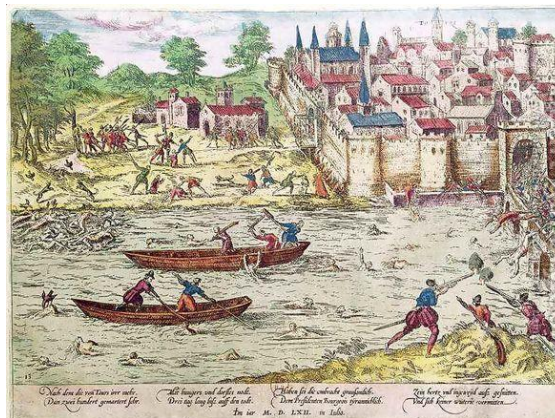 TOURS
15
Nach dem die von Tours irer mehr,
Dan zwei hundert gemartert sehr.
Mit hungers und dorstes nodt,
Drei tag lang biss auff den todt.
Haben sie die umbracht grausamlich,
Dem Presidenten Bourgeon tyrannichlich,
Sein hertz und ingeweid auss gesnitten,
Und sich keiner wuterie vermitten.
Im iar M. D. LXII. in Iulio.